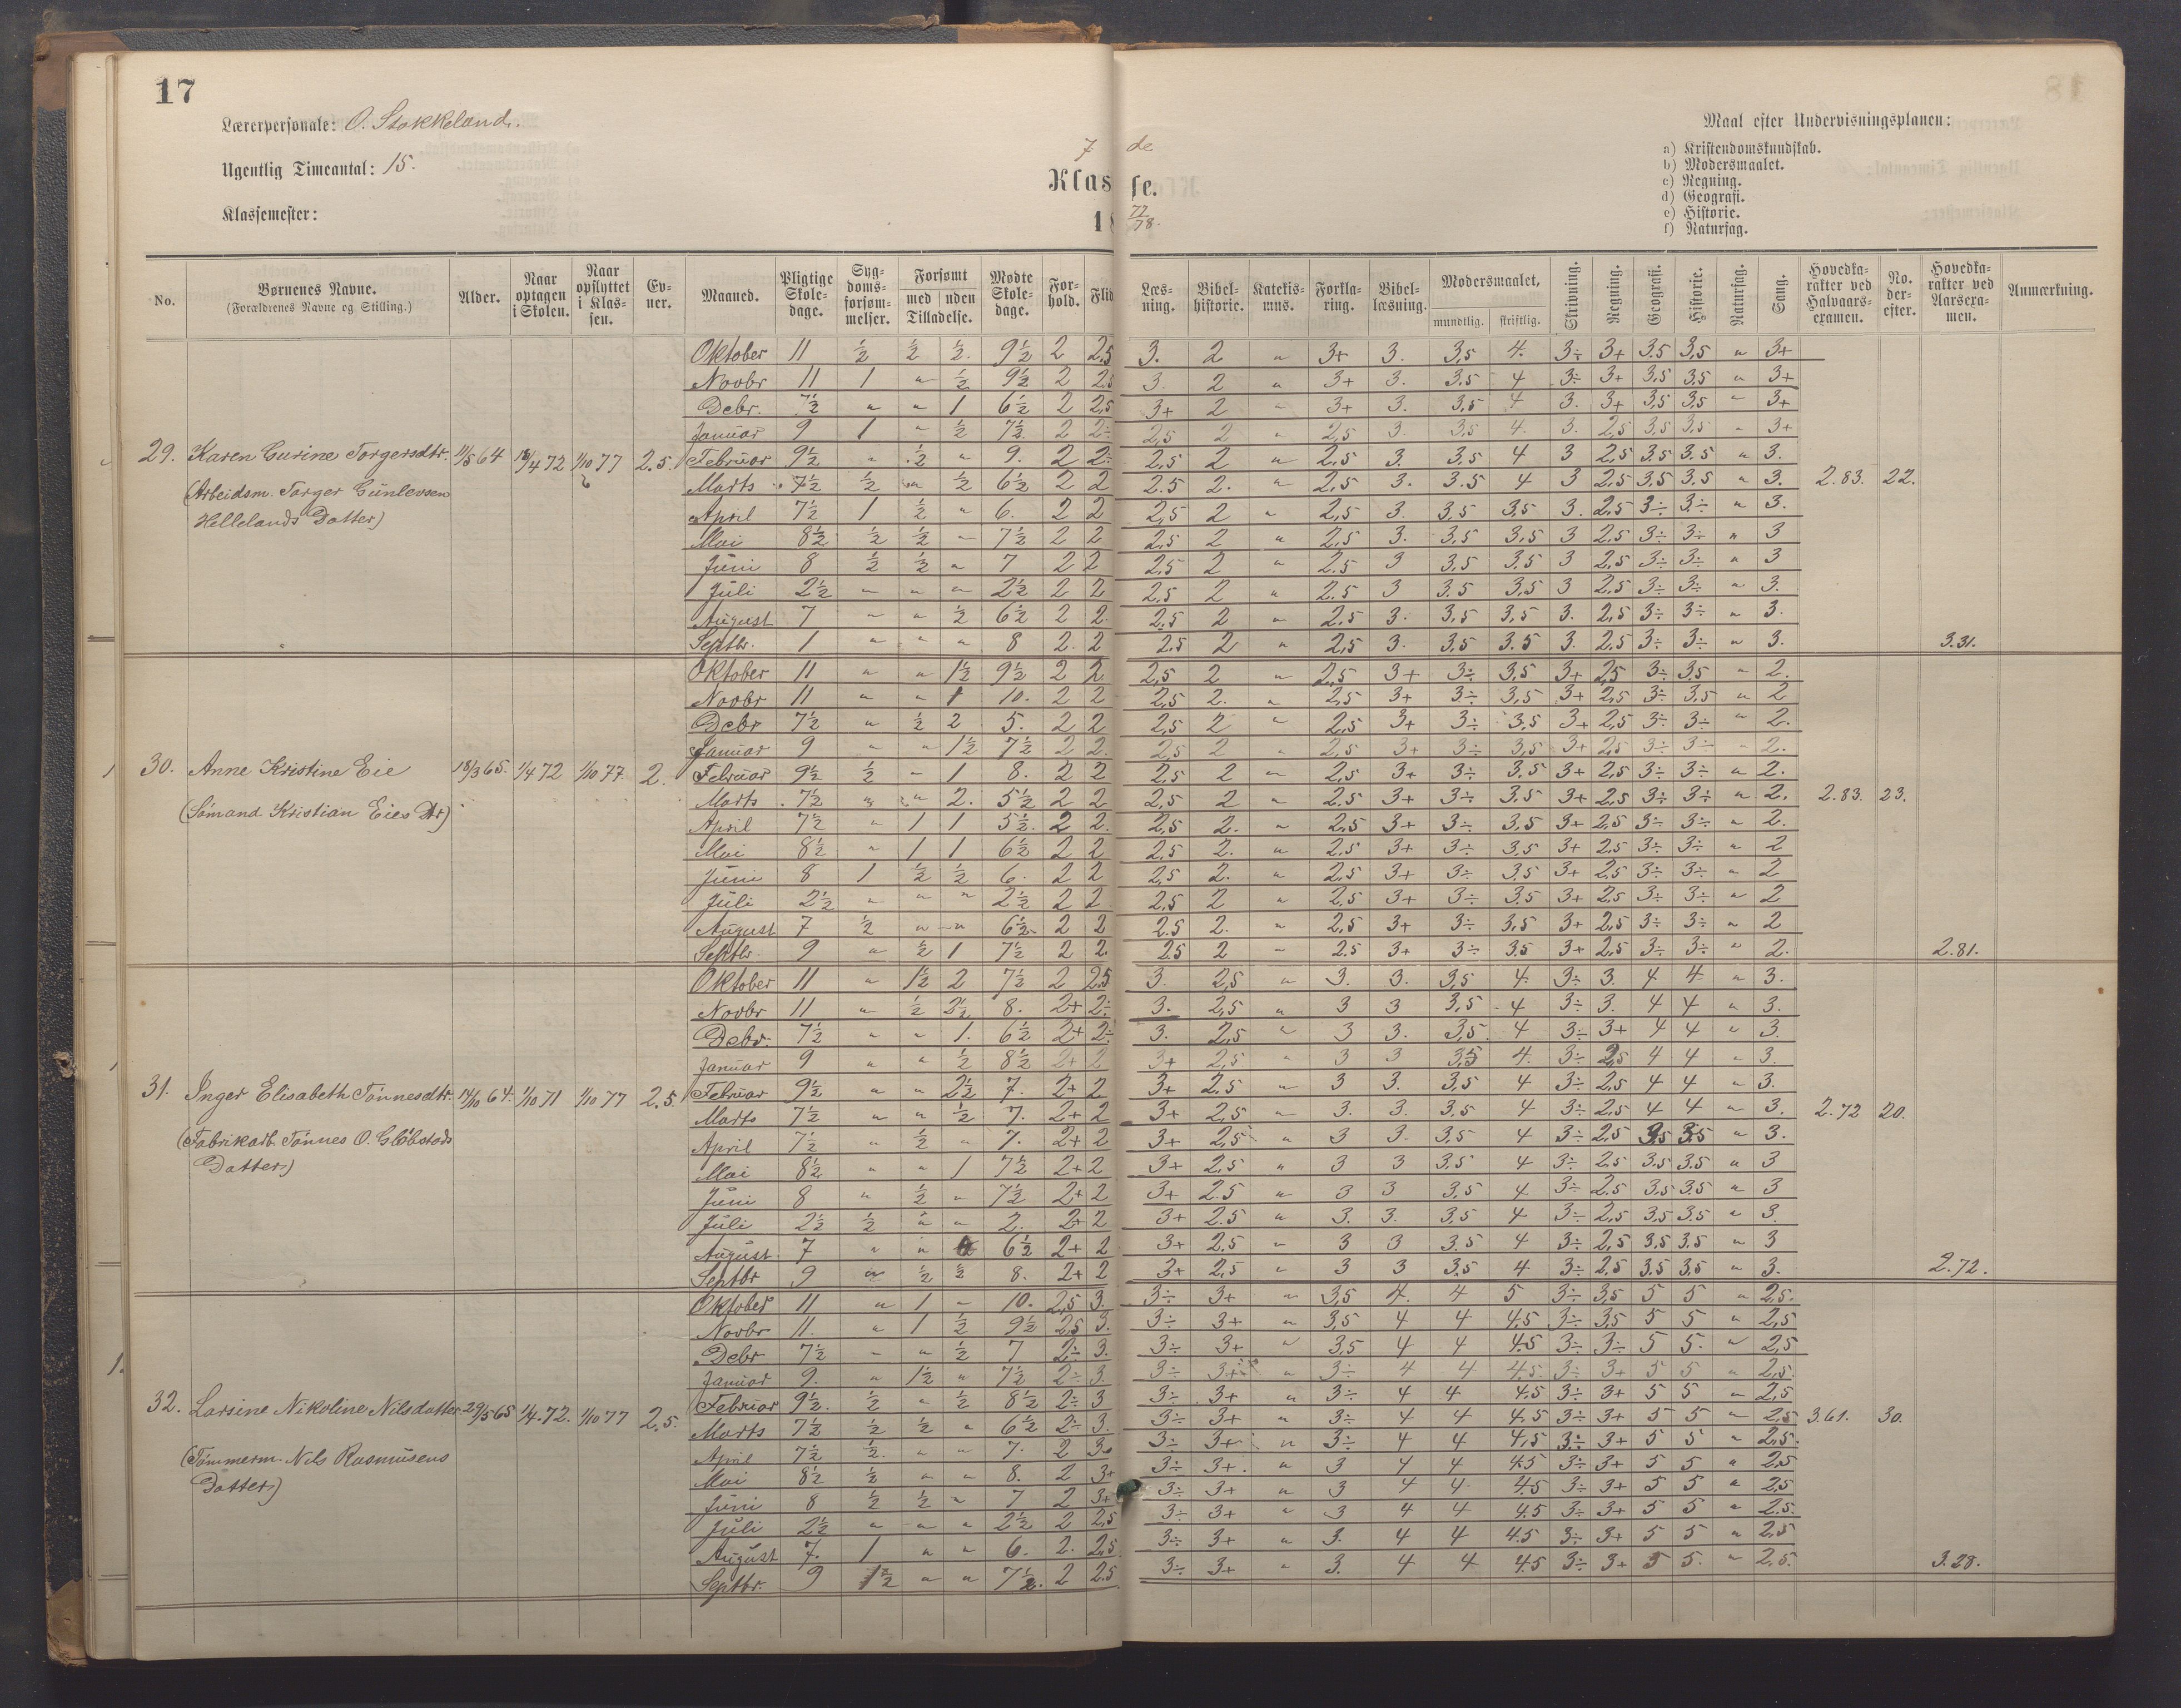 17
Lærerpersonale: O. Stokkeland.
Ugentlig Timeantal: 15.
Klassemester:
7 de
Klasse.
18 77/78.
Maal efter Undervisningsplanen:
a) Kristendomskundskab.
b) Modersmaalet.
c) Regning.
d) Geografi.
e) Historie.
f) Naturfag.
No. | Børnenes Navne. (Forældrenes Navne og Stilling.) | Alder. | Naar optagen i Skolen. | Naar opflyttet i Klassen. | Evner. | Maaned. | Pligtige Skoledage. | Sygdomsforsømmelser. | Forsømt med | uden Tilladelse. | Mødte Skoledage. | Forhold. | Flid | Læsning. | Bibelhistorie. | Katekismus. | Forklaring. | Bibellæsning. | Modersmaalet, mundtlig. | skriftlig. | Skrivning. | Regning. | Geografi. | Historie. | Naturfag. | Sang. | Hovedkarakter ved Halvaarsexamen. | No. derefter. | Hovedkarakter ved Aarsexamen. | Anmærkning.
Oktober 11 ½ ½ ½. 9½ 2 2,5 3. 2 " 3+ 3. 3,5 4. 3÷ 3+ 3.5 3,5 " 3+
Novbr 11 1 " ½ 9½ 2 2.5 3. 2 " 3+ 3. 3,5 4 3÷ 3+ 3,5 3,5 " 3+
Debr. 7½ " " 1 6½ 2 2,5 3+ 2 " 3+ 3. 3,5 4 3. 3+ 3,5 3,5 " 3+
Januar 9 1 " ½ 7½ 2 2÷ 2,5 2 " 2,5 3. 3,5 4. 3. 2,5 3,5 3.5 " 3+
29. Karen Gurine Torgersdtr. 11/5 64 18/4 72 1/10 77 2.5. Februar 9½ " ½ " 9. 2 2÷ 2,5 2 " 2,5 3. 3,5 4 3 2,5 3.5 3.5 " 3.
(Arbeidsm. Torger Gunlevsen Marts 7½ ½ " ½ 6½ 2 2 2.5 2. " 2,5 3. 3.5 4 3 2,5 3,5 3.5 " 3. 2.83. 22.
Hellelands Datter) April 7½ 1 ½ " 6. 2 2 2,5 2 " 2,5 3. 3,5 3,5 3. 2,5 3÷ 3÷ " 3.
Mai 8½ ½ ½ " 7½ 2 2 2,5 2 " 2,5 3. 3,5 3,5 3 2.5 3÷ 3÷ " 3
Juni 8 ½ ½ " 7 2 2 2,5 2 " 2.5 3 3,5 3.5 3 2,5 3÷ 3÷ " 3
Juli 2½ " " " 2½ 2 2 2,5 2 " 2.5 3 3.5 3,5 3 2,5 3÷ 3÷ " 3.
August 7 " " ½ 6½ 2 2. 2,5 2 " 2,5 3. 3,5 3,5 3. 2,5 3÷ 3÷ " 3.
Septbr. 1 " " " 8 2. 2 2.5 2 " 2,5 3. 3,5 3.5 3. 2.5 3÷ 3÷ " 3. 3.31.
Oktober 11 " " 1½ 9½ 2 2 2,5 2 " 2,5 3+ 3÷ 3,5 3+ 2,5 3÷ 3,5 " 2.
Novbr 11 " " 1 10. 2 2 2,5 2. " 2,5 3+ 3÷ 3,5 3+ 2,5 3÷ 3,5 " 2
Debr 7½ " ½ 2 5. 2 2 2,5 2 " 2,5 3+ 3÷ 3.5 3+ 2,5 3÷ 3÷ " 2.
Januar 9 " " 1½ 7½ 2 2. 2,5 2 " 2,5 3+ 3÷ 3,5 3+ 2,5 3÷ 3÷ " 2.
30. Anne Kristine Eie 18/3 65. 1/4 72 1/10 77. 2. Februar 9½ ½ " 1 8. 2 2 2,5 2 " 2,5 3+ 3÷ 3.5 3+ 2,5 3÷ 3÷ " 2.
(Sömand Kristian Eies Dtr) Marts 7½ " " 2. 5½ 2 2 2,5 2 " 2.5 3+ 3÷ 3.5 3+ 2,5 3÷ 3÷ " 2. 2.83. 23.
April 7½ " 1 1 5½. 2 2. 2,5 2. " 2.5 3+ 3÷ 3,5 3+ 2.5 3÷ 3÷ " 2.
Mai 8½ " 1 1 6½ 2 2 2,5 2. " 2.5 3+ 3÷ 3,5 3+ 2.5 3÷ 3÷ " 2
Juni 8 1 ½ ½ 6. 2 2 2,5 2. " 2,5 3+ 3÷ 3.5 3+ 2,5 3÷ 3÷ " 2
Juli 2½ " " " 2½ 2 2 2,5 2 " 2,5 3+ 3÷ 3.5 3+ 2,5 3÷ 3÷ " 2
August 7 ½ " " 6½ 2 2 2.5 2. " 2,5 3+ 3÷ 3,5 3+ 2,5 3÷ 3÷ " 2
Septbr. 9 " ½ 1 7½ 2 2. 2.5 2 " 2.5 3+ 3÷ 3.5 3+ 2,5 3÷ 3÷ " 2. 2.81.
Oktober 11 " 1½ 2 7½ 2 2.5 3. 2,5 " 3. 3. 3,5 4. 3÷ 3. 4 4. " 3.
Novbr 11 " ½ 2½ 8. 2+ 2÷ 3. 2,5 " 3 3 3,5 4 3÷ 3. 4 4 " 3.
Debr. 7½ " " 1. 6½ 2+ 2÷ 3. 2,5 " 3 3. 3,5. 4 3÷ 3+ 4 4 " 3
Januar 9 " " ½ 8½ 2+ 2 3+ 2,5 " 3 3 3,5 4. 3÷ 2,5 4 4 " 3.
31. Inger Elisabeth Tönnesdtr. 14/10 64. 1/10 71 1/10 77 2.5. Februar 9½ " " 2½ 7. 2+ 2 3+ 2.5 " 3 3. 3,5 4 3÷ 2,5 4 4 " 3.
(Fabrikarb. Tönnes O. Glöbstads Marts 7½ " " ½ 7. 2+ 2 3+ 2,5 " 3. 3. 3,5 4 3÷ 2,5 4 4 " 3. 2.72 20.
Datter) April 7½ " ½ " 7. 2+ 2 3+ 2,5 " 3 3. 3,5 4 3÷ 2,5 3,5 3.5 " 3.
Mai 8½ " " 1 7½ 2+ 2 3+ 2,5 " 3 3 3,5 4 3÷ 2.5 3.5 3.5 " 3
Juni 8 " ½ " 7½ 2+ 2 3+ 2.5 " 3 3 3,5 4 3÷ 2.5 3,5 3.5 " 3
Juli 2½ ½ " " 2. 2+ 2 3+ 2.5 " 3. 3. 3,5 4 3÷ 2,5 3,5 3.5 " 3.
August 7 " " 6½ 2+ 2 3+ 2.5 " 3 3 3.5 4 3÷ 2,5 3,5 3.5 " 3
Septbr 9 " ½ ½ 8. 2+ 2 3+ 2,5 " 3 3 3.5 4 3÷ 2.5 3.5 3,5 " 3. 2.72.
Oktober 11 " 1 " 10. 2,5 3. 3÷ 3+ " 3,5 4. 4 5 3÷ 3,5 5 5 " 2,5.
Novbr 11. " 1 ½ 9½ 2.5 3. 3÷ 3+ " 3,5 4 4 4.5 3÷ 3,5 5 5 " 2,5
Debr 7½ " " ½ 7 2÷ 3. 3÷ 3+ " 3,5 4 4 4.5 3÷ 3÷ 5 5. " 2,5
Januar 9. " 1½ " 7½ 2÷ 3. 3÷ 3+ " 3÷ 4 4 4,5. 3÷ 3+ 5 5 " 2,5.
32. Larsine Nikoline Nilsdatter. 29/5 65 1/4. 72. 1/10 77 2.5. Februar 9½. ½ " ½ 8½ 2÷ 3 3÷ 3+ " 3÷ 4 4 4.5 3÷ 3+ 5 5 " 2,5
Marts 7½ ½ ½ " 6½ 2÷ 3. 3÷ 3+ " 3÷ 4 4 4.5 3÷ 3+ 5 5 " 2,5 3.61. 30.
(Tömmerm. Nils Rasmusens April 7½ ½. " " 7. 2 3÷ 3+ " 3÷ 4 4 4,5 3÷ 3+ 5 5 " 2,5.
Datter) Mai 8½ ½ " " 8. 2 3+ 3÷ 3+. " 3 4 4 4.5 3÷ 3+ 5 5 " 2.5
Juni 8 ½ ½ " 7 2 3+ 3÷ 3+ " 3 4 4. 4.5 3÷ 3+ 5 5 " 2.5
Juli 2½ " " " 2½ 2 2,5 3÷ 3+ " 3 4 4 4.5 3÷ 3+ 5 5 " 2.5.
August 7. 1 " " 6. 2. 2,5. 3÷ 3+ " 3. 4 4 4.5 3÷ 3+ 5 5 " 2,5
Septbr. 9 1½ " " 7½. 2 2.5 3÷ 3+ " 3. 4 4 4.5 3÷ 3+ 5 5. " 2,5. 3.28.